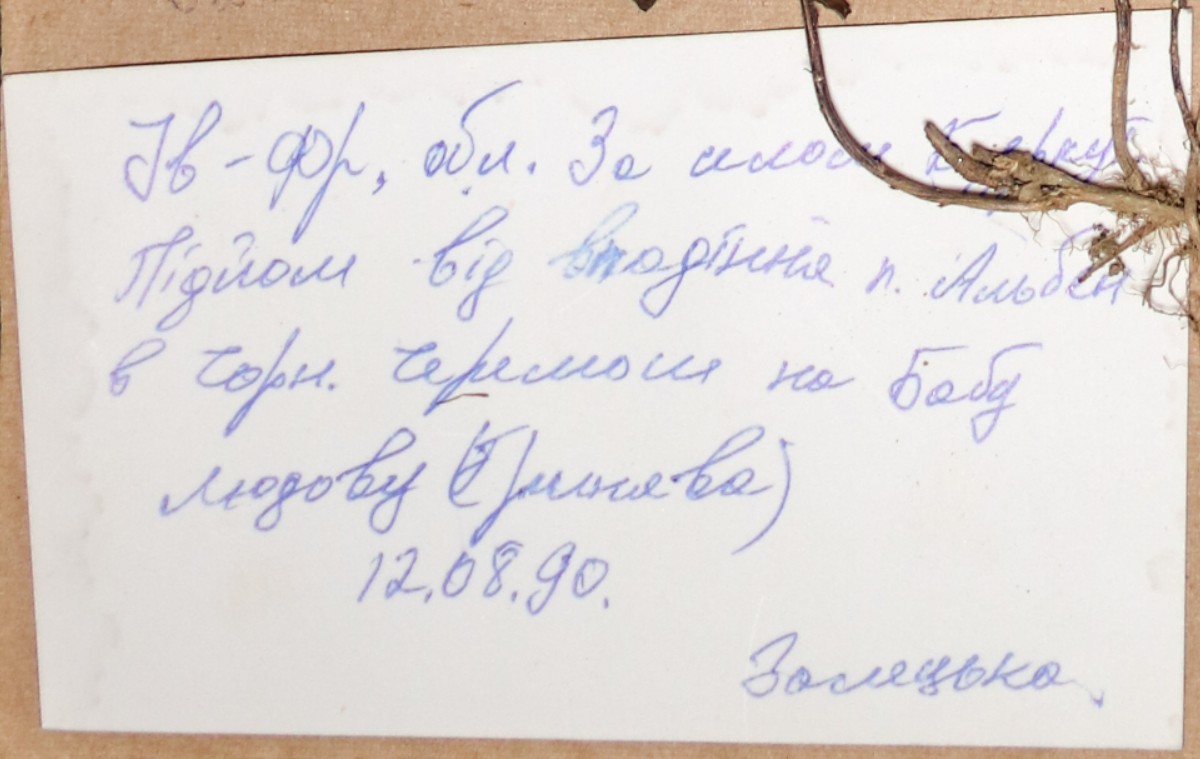 Ів-Фр, обл. За
Підйом від впадіння п. Альбен
в Чорн. Черемош на Бабу
Людову (Гринява)
12.08.90.
Заляцька